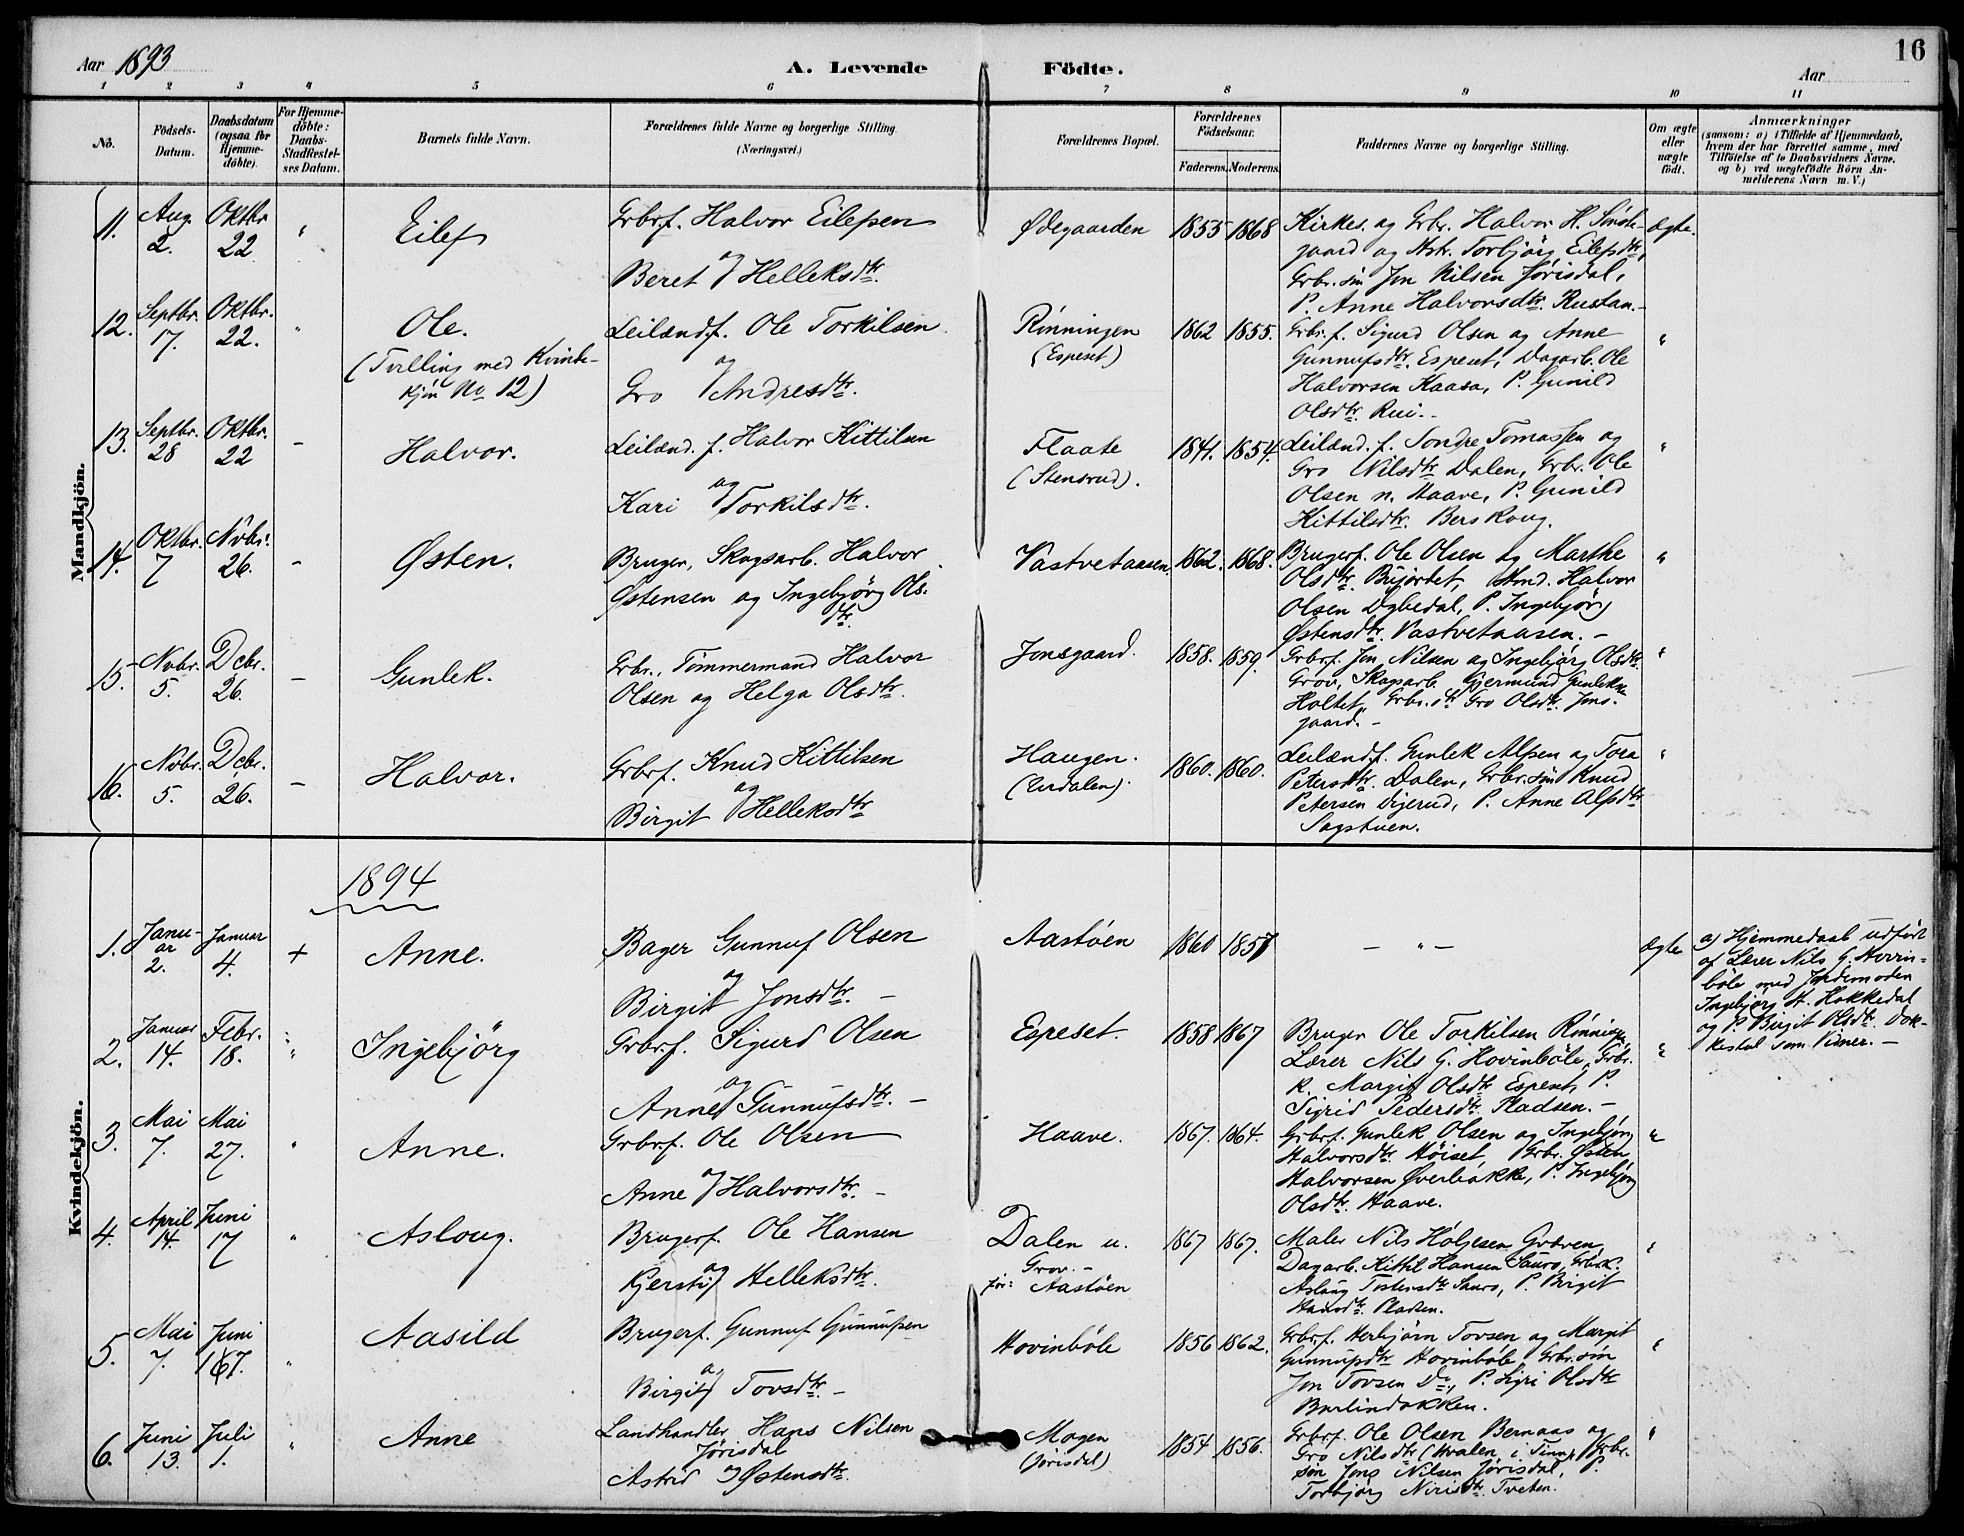 Aar 1893
A. Levende Födte.
Aar
16
1 2 3 4 5 6 7 8 9 10 11
No.
Födsels-Datum.
Daabsdatum (ogsaa för Hjemme-döbte).
For Hjemme-döbte: Daabs-Stadfæstel-ses Datum.
Barnets fulde Navn.
Forældrenes fulde Navne og borgerlige Stilling.
(Næringsvei.)
Forældrenes Bopæl.
Forældrenes Födselsaar.
Faderens. Moderens.
Faddernes Navne og borgerlige Stilling.
Om ægte eller uægte födt.
Anmærkninger
(saasom: a) i Tilfælde af Hjemmedaab,
hvem der har forrettet samme, med
Tilföielse af to Daabsvidners Navne.
og b) ved uægtefödte Börn An-
melderens Navn m. V.)
Mandkjön.
11. Aug. 2. Oktbr 22 " Eilef
Grbrf. Halvor Eilefsen
og
Beret Helleksdtr.
Ødegaarden 1855 1868
Kirkes. og Grbr. Halvor H.
gaard og Hstr. Torbjörg Eilefsdtr,
Grbr. sön Jon Nilsen Jørisdal,
P. Anne Halvorsdtr. Rustan.-
Ægte.
12. Septbr. 17. Oktbr. 22. " Ole.
(Tvilling med Kvinde-
kjön No 12)
Leilænd.f. Ole Torkilsen
og
Gro Andresdtr.
Rønningen
(Espeset)
1862 1855.
Grbr. f. Sigurd Olsen og Anne
Gunnufsdtr. Espeset, Dagarb. Ole
Halvorsen Kaasa, P. Gunild
Olsdtr. Rui.-
"
13. Septbr. 28 Oktbr. 22 - Halvor.
Leilænd. f. Halvor Kittilsen
og
Kari Torkilsdtr.
Flaate
(Stensrud).
1841. 1854.
Leilænd. f. Sondre Tomassen og
Gro Nilsdtr Dalen, Grbr. Ole
Olsen n. Haave, P. Gunild
Kittilsdtr. Berskoug.
"
14. Oktbr. 7 Novbr. 26. - Østen.
Bruger, Skogsarb. Halvor
Østensen og Ingebjörg Ols-
dtr.
Vastvetaasen. 1862. 1868.
Brugerf. Ole Olsen og Marthe
Olsdtr. Halvor
Olsen P. Ingebjörg
Østensdtr. Vastvetaasen. -
"
15. Novbr. 5. Dcbr. 26. - Gunlek.
Grbr., Tømmermand Halvor
Olsen og Helga Olsdtr.
Jonsgaard. 1858. 1859.
Grbrf. Jon Nilsen og Ingebjörg Olsdtr.
Grov, Skogsarb. Gjermund Gunleksen
Holtet, Grbr. dtr Gro Olsdtr. Jons-
gaard. -
"
16. Novbr. 5. Dcbr. 26. - Halvor.
Grbrf. Knud Kittilsen
og
Birgit Helleksdtr
Haugen.
(Urdalen).
1860. 1860.
Leilænd.f. Gunlek Alfsen og Tora
Petersdtr. Dalen, Grbr. sön Knud
Petersen P. Anne Alfsdtr
Sagstuen.
"
Kvindekjön.
1894
1. Janu-
ar
2. Januar 4. + Anne.
Bager Gunnuf Olsen
og
Birgit Jonsdtr. -
Aastøen 1860 1857
- " -
Ægte
a) Hjemmedaab udfört
af Lærer Nils G. Hovin-
böle med Jordemoder
Ingebjörg H. Hakkedal
og P. Birgit Olsdtr.
som Vidner. -
2. Januar 14. Febr. 18. " Ingebjörg
Grbrf. Sigurd Olsen
og
Anne Gunnufsdtr. -
Espeset. 1858 1867
Bruger Ole Torkilsen Rønningen,
Lærer Nils G. Hovinböle, Grbr.
k. Margit Olsdtr Espeset, P.
Sigrid Pedersdtr. Pladsen. -
"
3. Mai 7. Mai 27. " Anne.
Grbrf. Ole Olsen
og
Anne Halvorsdtr. -
Haave. 1867. 1864.
Grbrf. Gunlek Olsen og Ingebjörg
Halvorsdtr. Höiset, Grbr. Østen
Halvorsen P. Ingebjörg
Olsdtr. Haave.
"
4. April 14. Juni 17 " Asloug.
Brugerf. Ole Hansen
og
Kjersti Helleksdtr.
Dalen u.
Grov. -
før: Aastøen
1867 1867.
Maler Nils Höljesen Græven,
Dagarb. Kittil Hansen Sauro, Grbrk.
Aslaug Tostensdtr Sauro, P. Birgit
Hansdtr. Pladsen.
"
5. Mai 7. Juni 17. " Aasild
Brugerf. Gunnuf Gunnufsen
og
Birgit Tovsdtr. -
Hovinböle 1856 1862.
Grbrf. Herbjörn Tovsen og Margit
Gunnufsdtr Hovinböle, Grbr. sön
Jon Tovsen Do, P. Sigri Olsdtr
Barlindbakken.
"
6. Juni 13. Juli 1. " Anne
Landhandler Hans Nilsen
Jørisdal
Astrid og Østensdtr.
Mogen
(Jørisdal)
1854 1856.
Grbrf. Ole Olsen Bernaas og
Gro Nilsdtr (Hvalen i Tinn), Grbr.
sön Jons Nilsen Jørisdal, P.
Torbjörg Nirisdtr. Tveten.
"